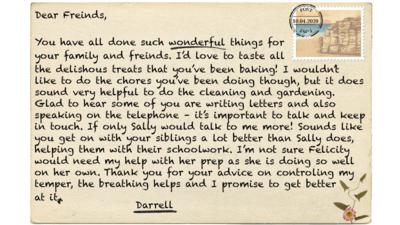 Dear Freinds,
POST
10.04.2020
You have all done such wonderful things for
your family and freinds. I'd love to taste all
the delishous treats that you've been baking! I wouldn't
like to do the chores you've been doing though, but it does
sound very helpful to do the cleaning and gardening.
Glad to hear some of you are writing letters and also
speaking on the telephone – it's important to talk and keep
in touch. If only Sally would talk to me more! Sounds like
you get on with your siblings a lot better than Sally does,
helping them with their schoolwork. I'm not sure Felicity
would need my help with her prep as she is doing so well
on her own. Thank you for your advice on controling my
temper, the breathing helps and I promise to get better
at it.
Darrell